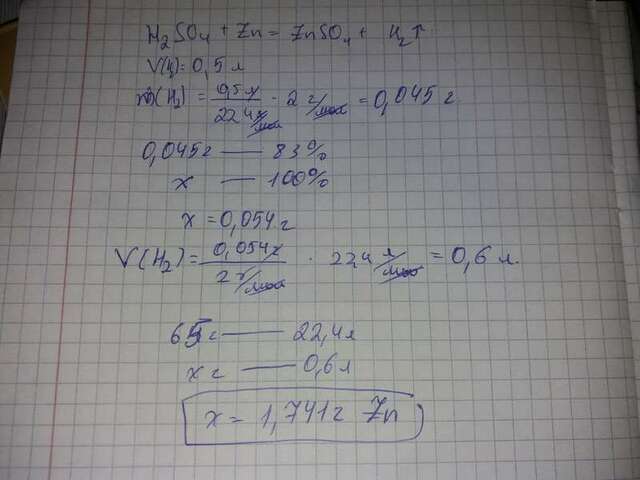 H₂SO₄ + Zn = ZnSO₄ + H₂↑
V(H₂) = 0,5 л
m(H₂) = 0,5 л / 22,4 л/моль · 2 г/моль = 0,045 г
0,045 г — 83%
x — 100%
x = 0,054 г
V(H₂) = 0,054 г / 2 г/моль · 22,4 л/моль = 0,6 л.
65 г — 22,4 л
x г — 0,6 л
x = 1,741 г Zn